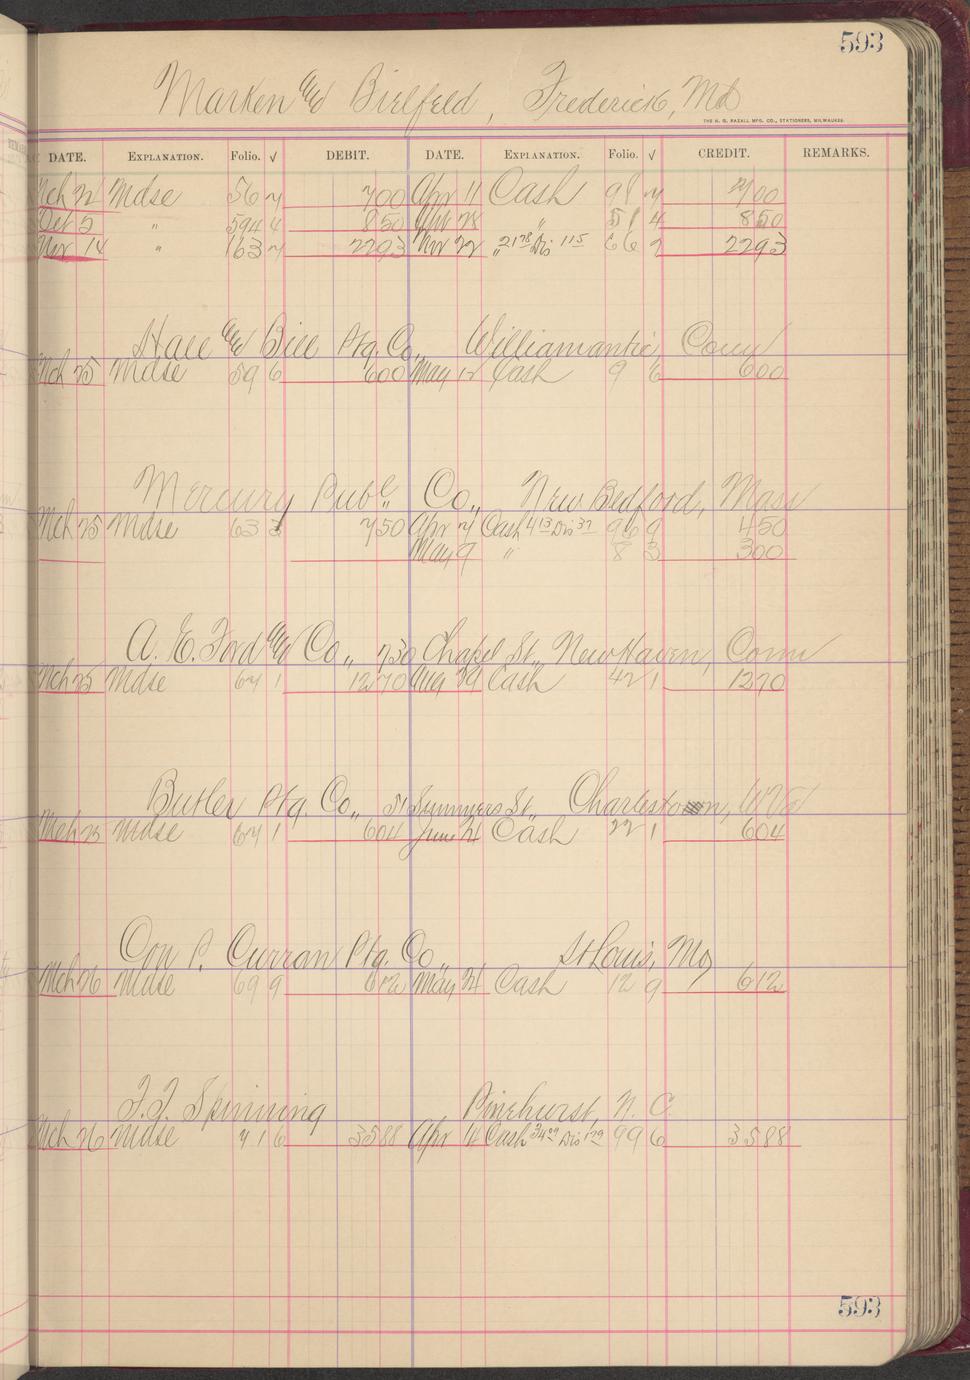 593
Marken and Bielfeld, Frederick, Md
THE H. G. RAZALL MFG. CO., STATIONERS, MILWAUKEE.
DATE. EXPLANATION. Folio. √ DEBIT. DATE. EXPLANATION. Folio. √ CREDIT. REMARKS.
Mch 22 Mdse 56 7 700 Apr 11 Cash 98 7 700
Oct 2 " 594 4 850 " 51 4 850
Nov 14 " 163 7 2293 Nov 22 " 21 78 Dis 1 15 66 2 2293
Hall and Bill Ptg. Co., Williamantic, Conn
Mch 25 Mdse 59 6 600 May 12 Cash 9 6 600
Mercury Publ. Co., New Bedford, Mass
Mch 25 Mdse 63 3 750 Apr 7 Cash 4 13 Dis 37 96 9 450
May 9 " 8 3 300
A. E. Ford and Co., 730 Chapel St., New Haven, Conn
Mch 25 Mdse 67 1 1270 Aug 29 Cash 42 1 1270
Butler Ptg. Co., 51 Summers St., Charleston, W Va
Mch 25 Mdse 67 1 604 June 24 Cash 22 1 604
Con P. Curran Ptg. Co., St Louis, Mo
Mch 26 Mdse 69 9 612 May 24 Cash 12 9 612
F. F. Spinning Pinehurst, N. C.
Mch 26 Mdse 71 6 3588 Apr 14 Cash 34 09 Dis 1 79 99 6 3588
593